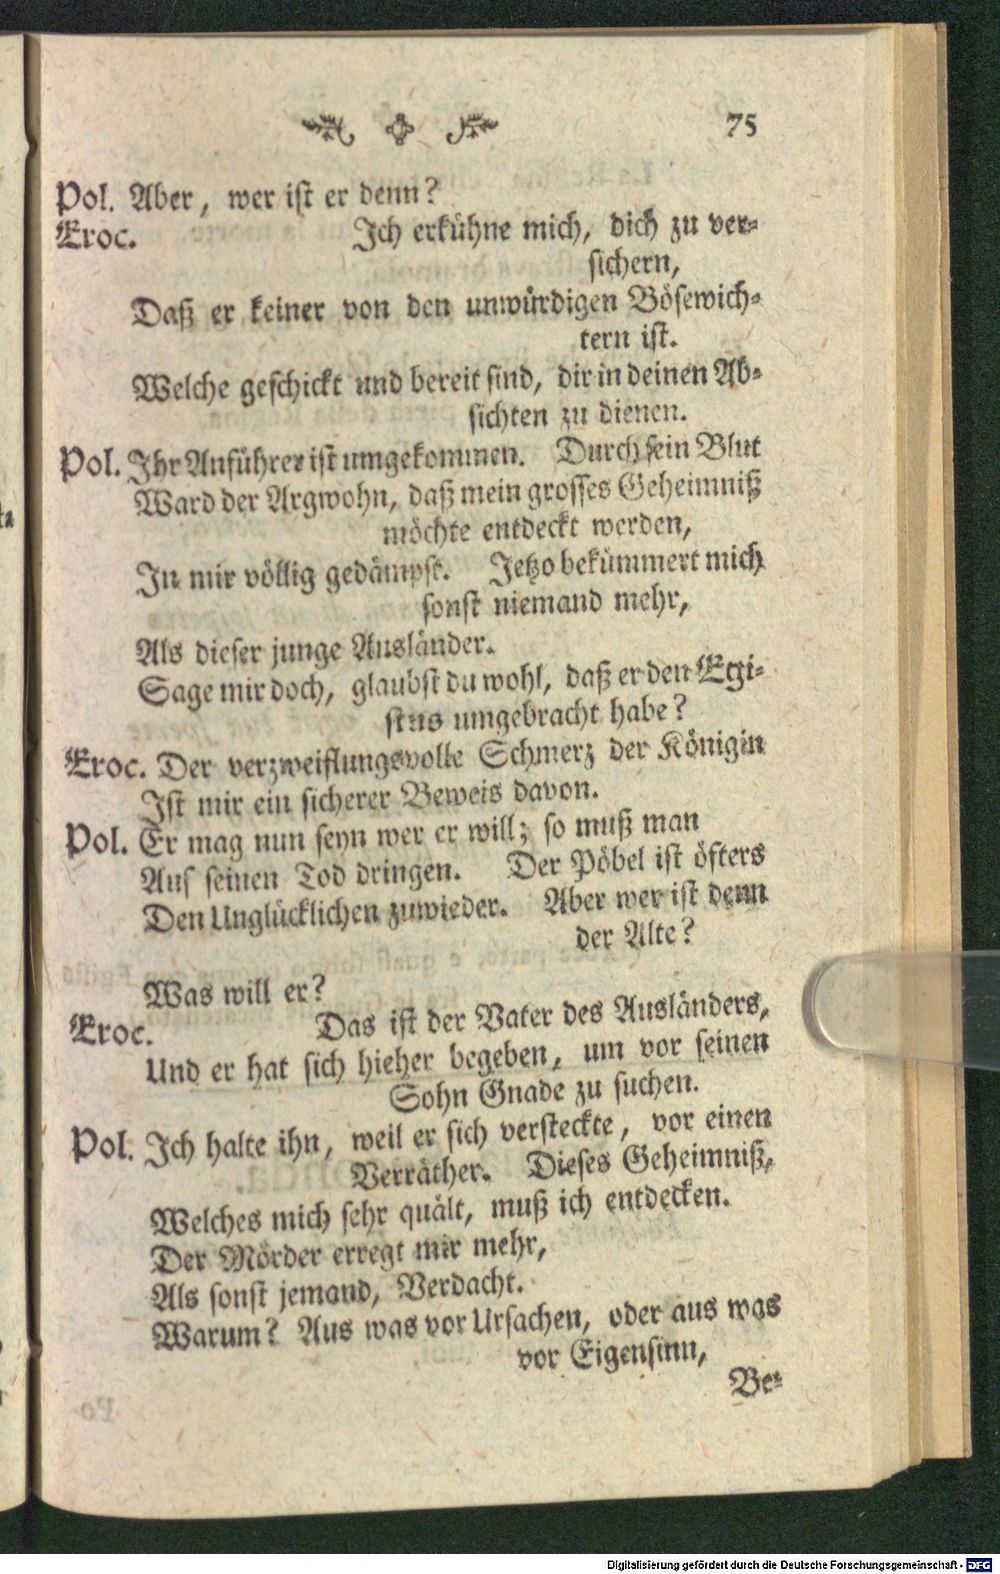 75
Pol. Aber, wer ist er denn?
Eroc. Ich erkühne mich, dich zu ver-
sichern,
Daß er keiner von den unwürdigen Bösewich-
tern ist.
Welche geschickt und bereit sind, dir in deinen Ab-
sichten zu dienen.
Pol. Ihr Anführer ist umgekommen. Durch sein Blut
Ward der Argwohn, daß mein grosses Geheimniß
möchte entdeckt werden,
In mir völlig gedämpft. Jetzo bekümmert mich
sonst niemand mehr,
Als dieser junge Ausländer.
Sage mir doch, glaubst du wohl, daß er den Egi-
stus umgebracht habe?
Eroc. Der verzweiflungsvolle Schmerz der Königin
Ist mir ein sicherer Beweis davon.
Pol. Er mag nun seyn wer er will; so muß man
Auf seinen Tod dringen. Der Pöbel ist öfters
Den Unglücklichen zuwieder. Aber wer ist denn
der Alte?
Was will er?
Eroc. Das ist der Vater des Ausländers,
Und er hat sich hieher begeben, um vor seinen
Sohn Gnade zu suchen.
Pol. Ich halte ihn, weil er sich versteckte, vor einen
Verräther. Dieses Geheimniß,
Welches mich sehr quält, muß ich entdecken.
Der Mörder erregt mir mehr,
Als sonst jemand, Verdacht.
Warum? Aus was vor Ursachen, oder aus was
vor Eigensinn,
Be-
Digitalisierung gefördert durch die Deutsche Forschungsgemeinschaft - DFG